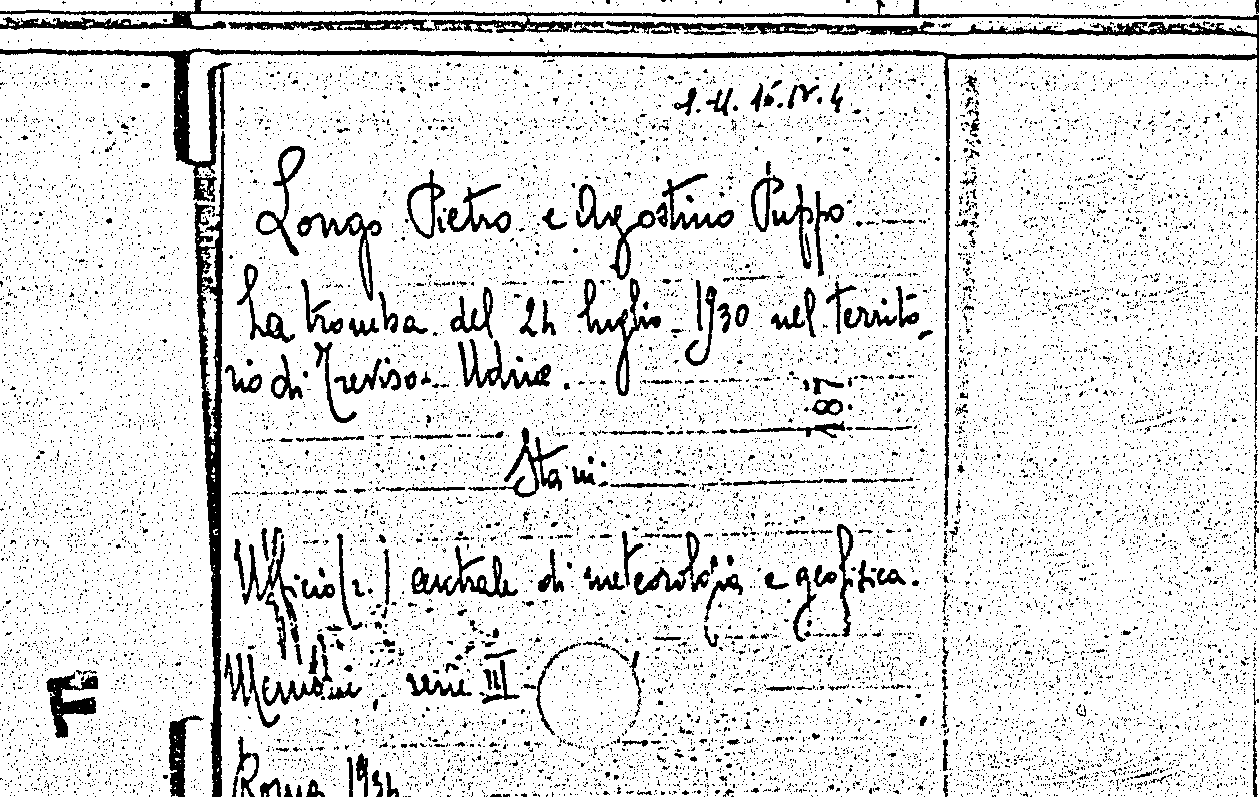 1.U.16.IV.4.
Longo Pietro e Agostino Puppo.
La tromba del 24 luglio 1930 nel territo-
rio di Treviso-Udine.
187
Sta in:
Ufficio (r.) centrale di meteorologia e geofisica.
Memorie serie III
Roma 1934